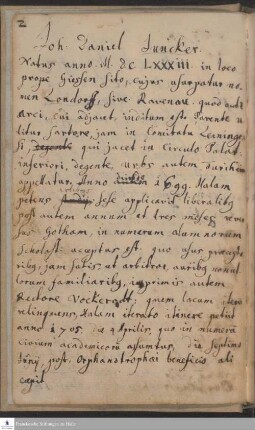 2
Joh. Daniel Juncker.
Natus anno. M. DC LXXXIII. in loco
prope Giessen sito, cujus usurpatur no-
men Londorff, sive Ravenau. quod
arci, cui adjacet, inditum est. Parente u-
titur, sartore, jam in Comitatu Leininge
si, qui jacet in Circulo Palat.
inferiori, degente. urbs autem Durcheim
appellatur. Anno 1699. Halam
petens, sese applicavit liberalibg
post autem annum et tres menses rever
sus Gotham, in numerum alumnorum
Scholast: aceptus est. quo usus
ribg, jam satis ut arbitror, auribg
lorum familiaribg, imprimis autem
Rectore Vockerodt: quem locum itero
relinquens, Halam iterato itinere petiit
anno 1705. die 4 Aprilis, quo in numerū
civium academicorū assumtus, die septimo
post, Orphanotrophei beneficio ali
cepit.